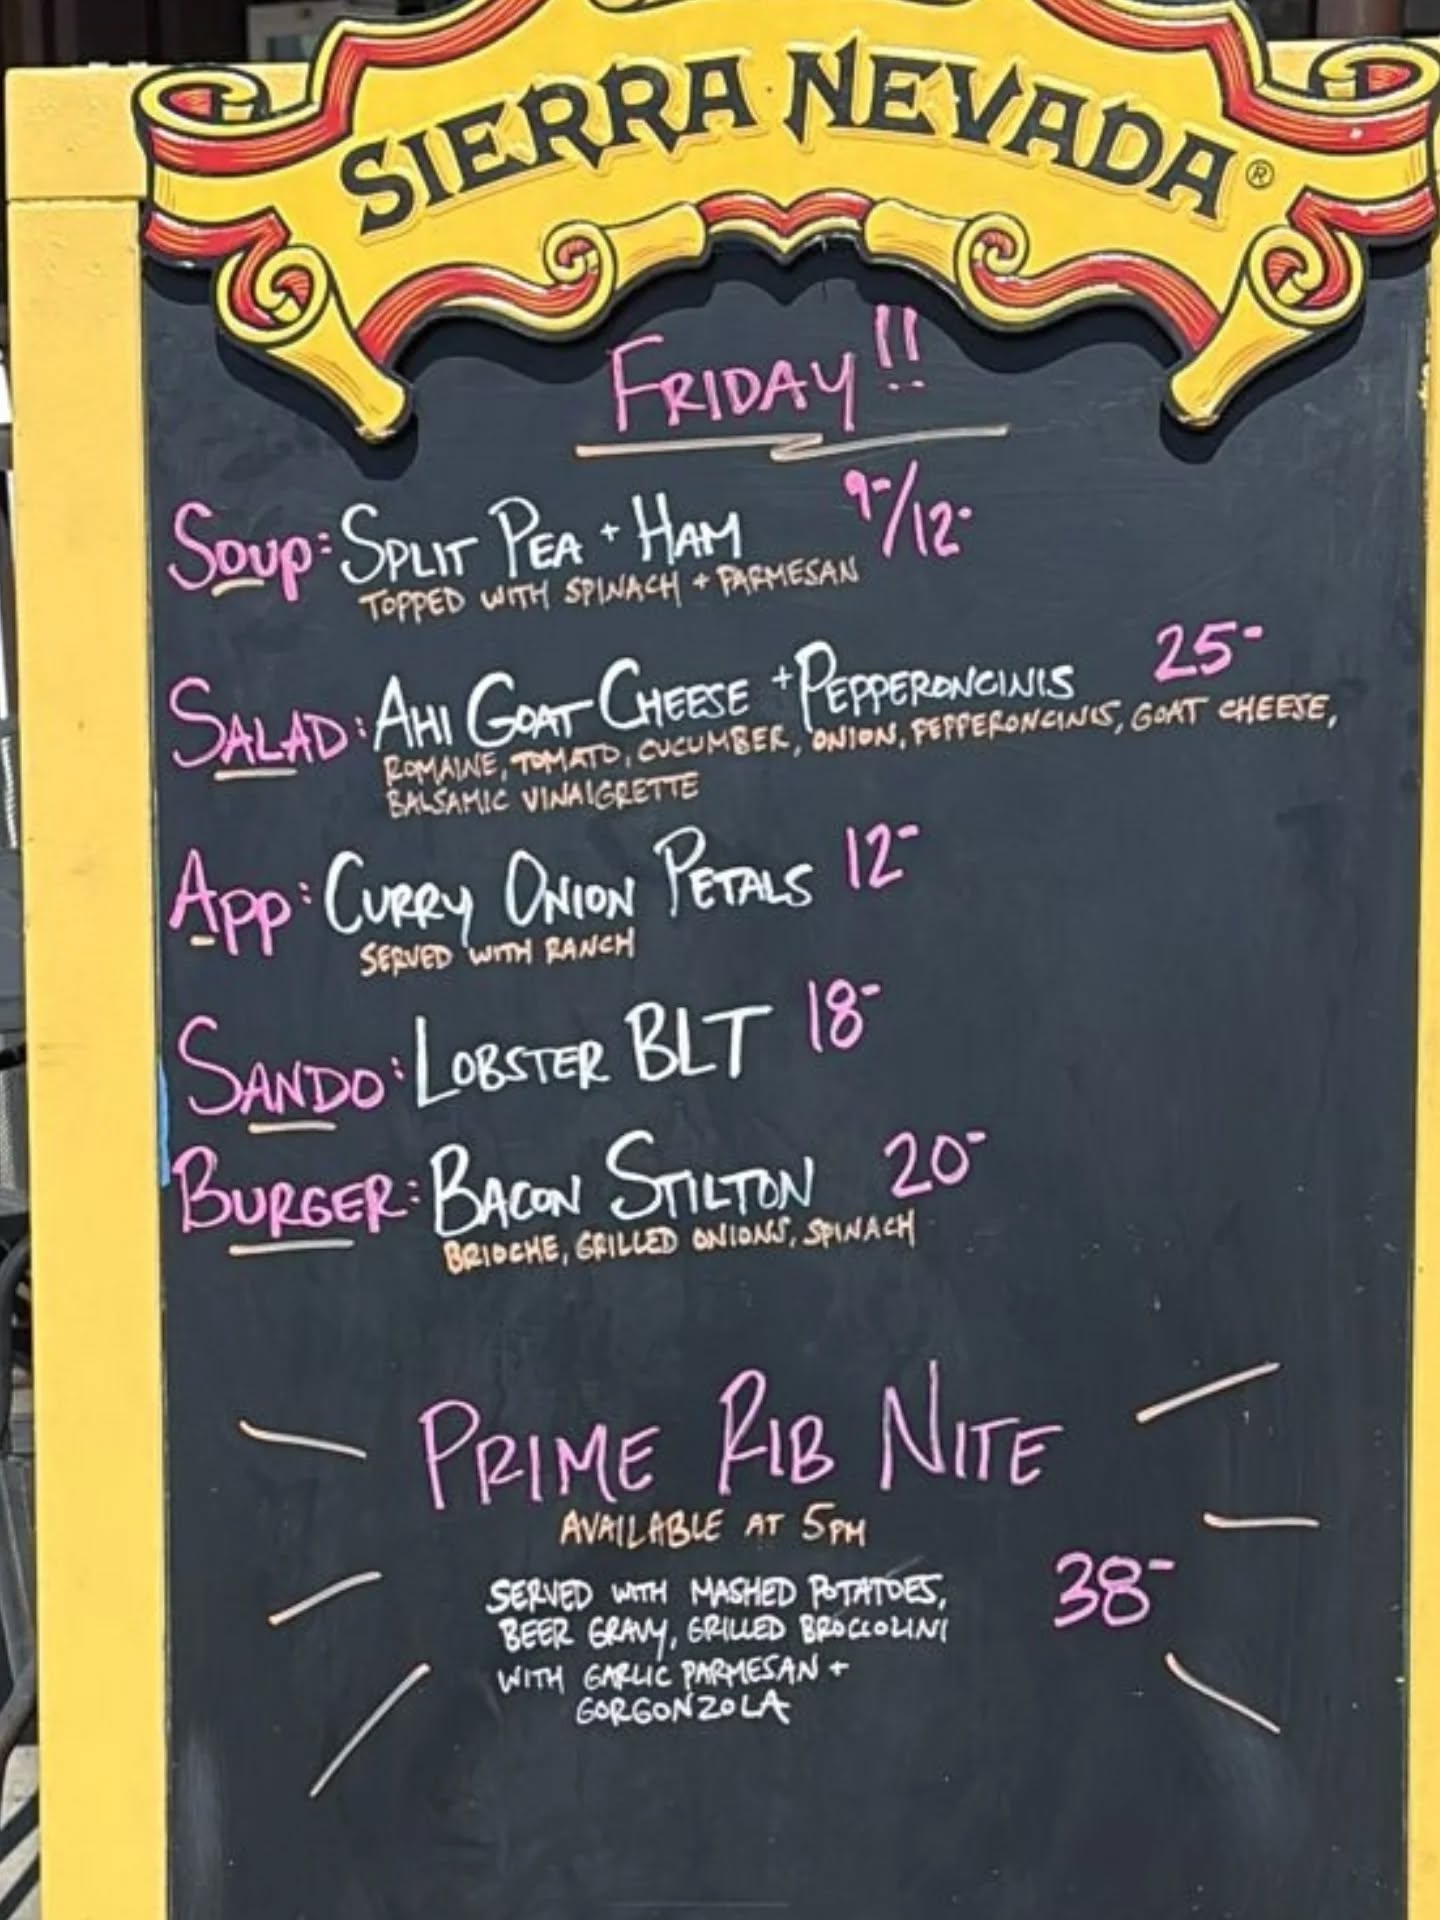 SIERRA NEVADA®
FRIDAY!!
SOUP: SPLIT PEA + HAM 9-/12-
TOPPED WITH SPINACH + PARMESAN
SALAD: AHI GOAT CHEESE + PEPPERONCINIS 25-
ROMAINE, TOMATO, CUCUMBER, ONION, PEPPERONCINIS, GOAT CHEESE,
BALSAMIC VINAIGRETTE
APP: CURRY ONION PETALS 12-
SERVED WITH RANCH
SANDO: LOBSTER BLT 18-
BURGER: BACON STILTON 20-
BRIOCHE, GRILLED ONIONS, SPINACH
PRIME RIB NITE
AVAILABLE AT 5PM
38-
SERVED WITH MASHED POTATOES,
BEER GRAVY, GRILLED BROCCOLINI
WITH GARLIC PARMESAN +
GORGONZOLA